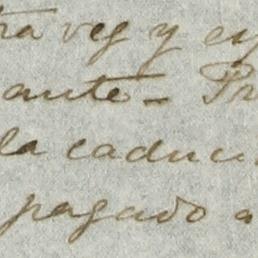 tra vez y es
ante_ Pr
la caduci
pagado a